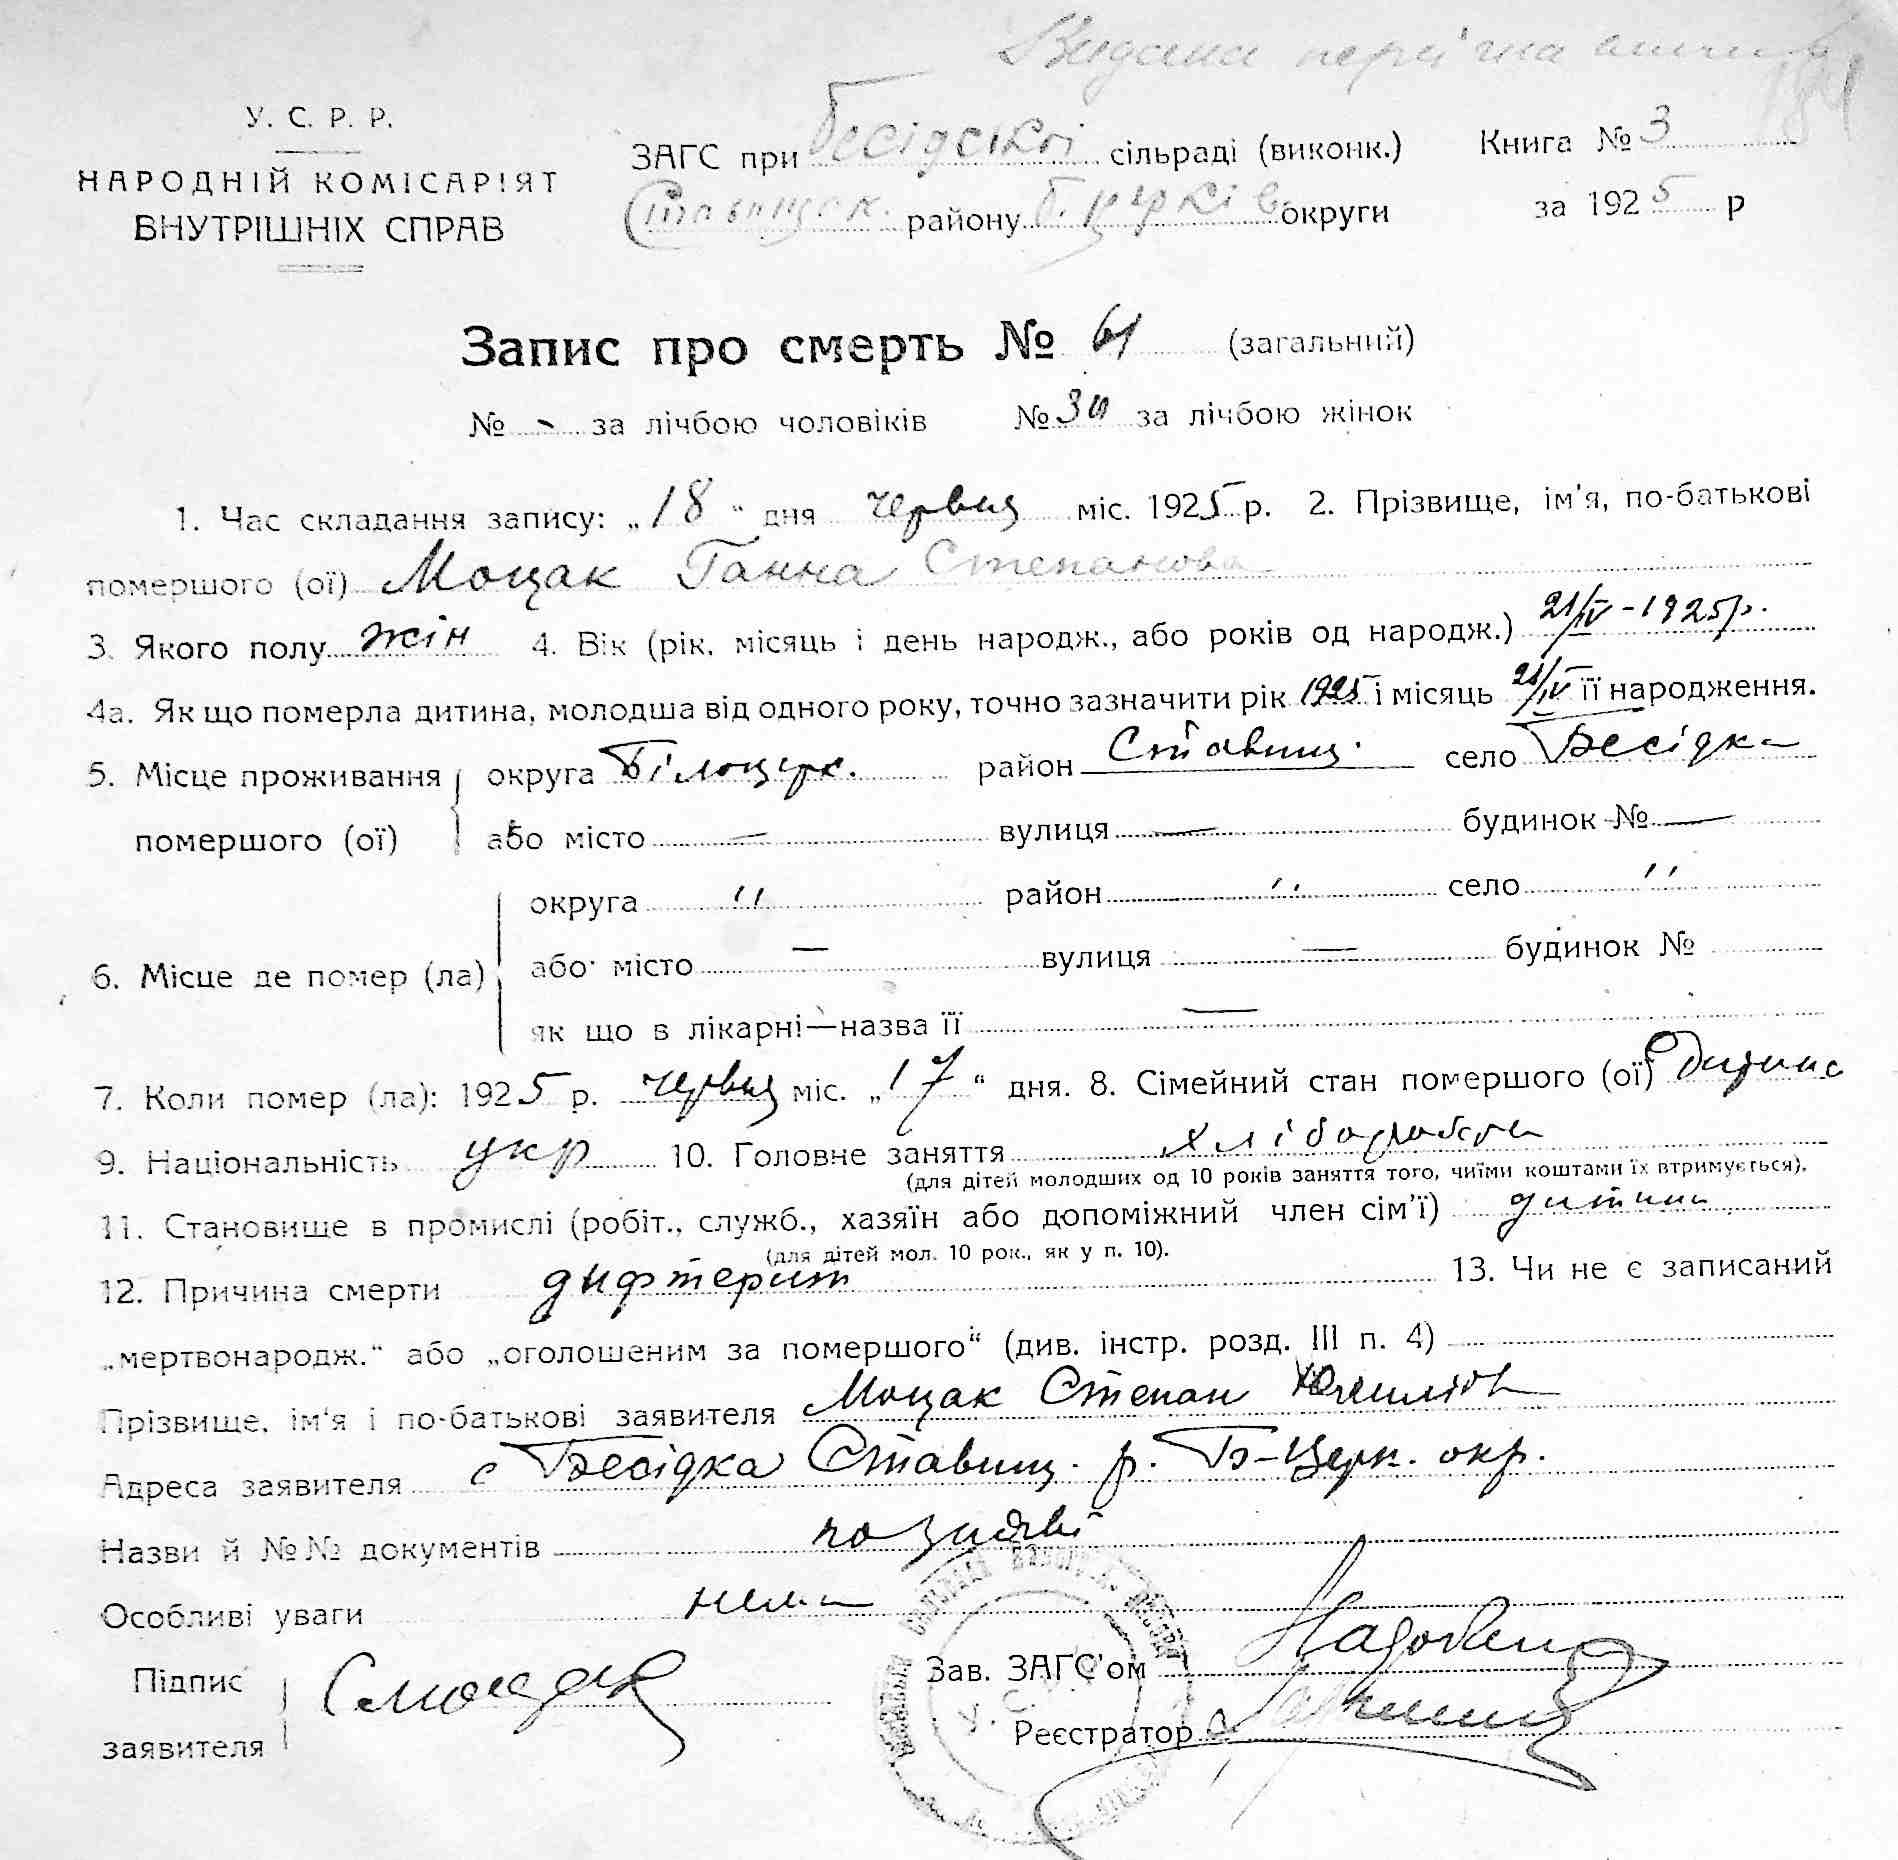 Видана
У. С. Р. Р.
НАРОДНІЙ КОМІСАРІЯТ
ВНУТРІШНІХ СПРАВ
ЗАГС при Бесідській сільраді (виконк.) Книга № 3
Ставищ к. району Б. Церків округи за 1925 р
Запис про смерть № 61 (загальний)
№ - за лічбою чоловіків № за лічбою жінок
1. Час складання запису: „18“ дня червця міс. 1925 р. 2. Прізвище, ім'я, по-батькові
помершого (ої) Моцак Ганна Степанова
3. Якого полу жін 4. Вік (рік, місяць і день народж., або років од народж.) 21/IV - 1925 р.
4а. Як що померла дитина, молодша від одного року, точно зазначити рік 1925 і місяць 21/IV її народження.
5. Місце проживання помершого (ої) округа Білоцерк. район Ставищ. село Бесідка
або місто — вулиця — будинок № —
6. Місце де помер (ла) округа " район " село "
або місто — вулиця — будинок №
як що в лікарні—назва її —
7. Коли помер (ла): 1925 р. червця міс. „17“ дня. 8. Сімейний стан помершого (ої) Дитина
9. Національність укр 10. Головне заняття хлібороби
(для дітей молодших од 10 років заняття того, чиїми коштами їх втримується).
11. Становище в промислі (робіт., служб., хазяїн або допоміжний член сім'ї) дитина
(для дітей мол. 10 рок., як у п. 10).
12. Причина смерти дифтерит 13. Чи не є записаний
„мертвонародж.“ або „оголошеним за помершого“ (див. інстр. розд. III п. 4)
Прізвище, ім'я і по-батькові заявителя Моцак Степан
Адреса заявителя с Бесідка Ставищ. р. Б-Церк. окр.
Назви й №№ документів по заяві
Особливі уваги нема
Підпис заявителя С моцак
Зав. ЗАГС'ом
Реєстратор